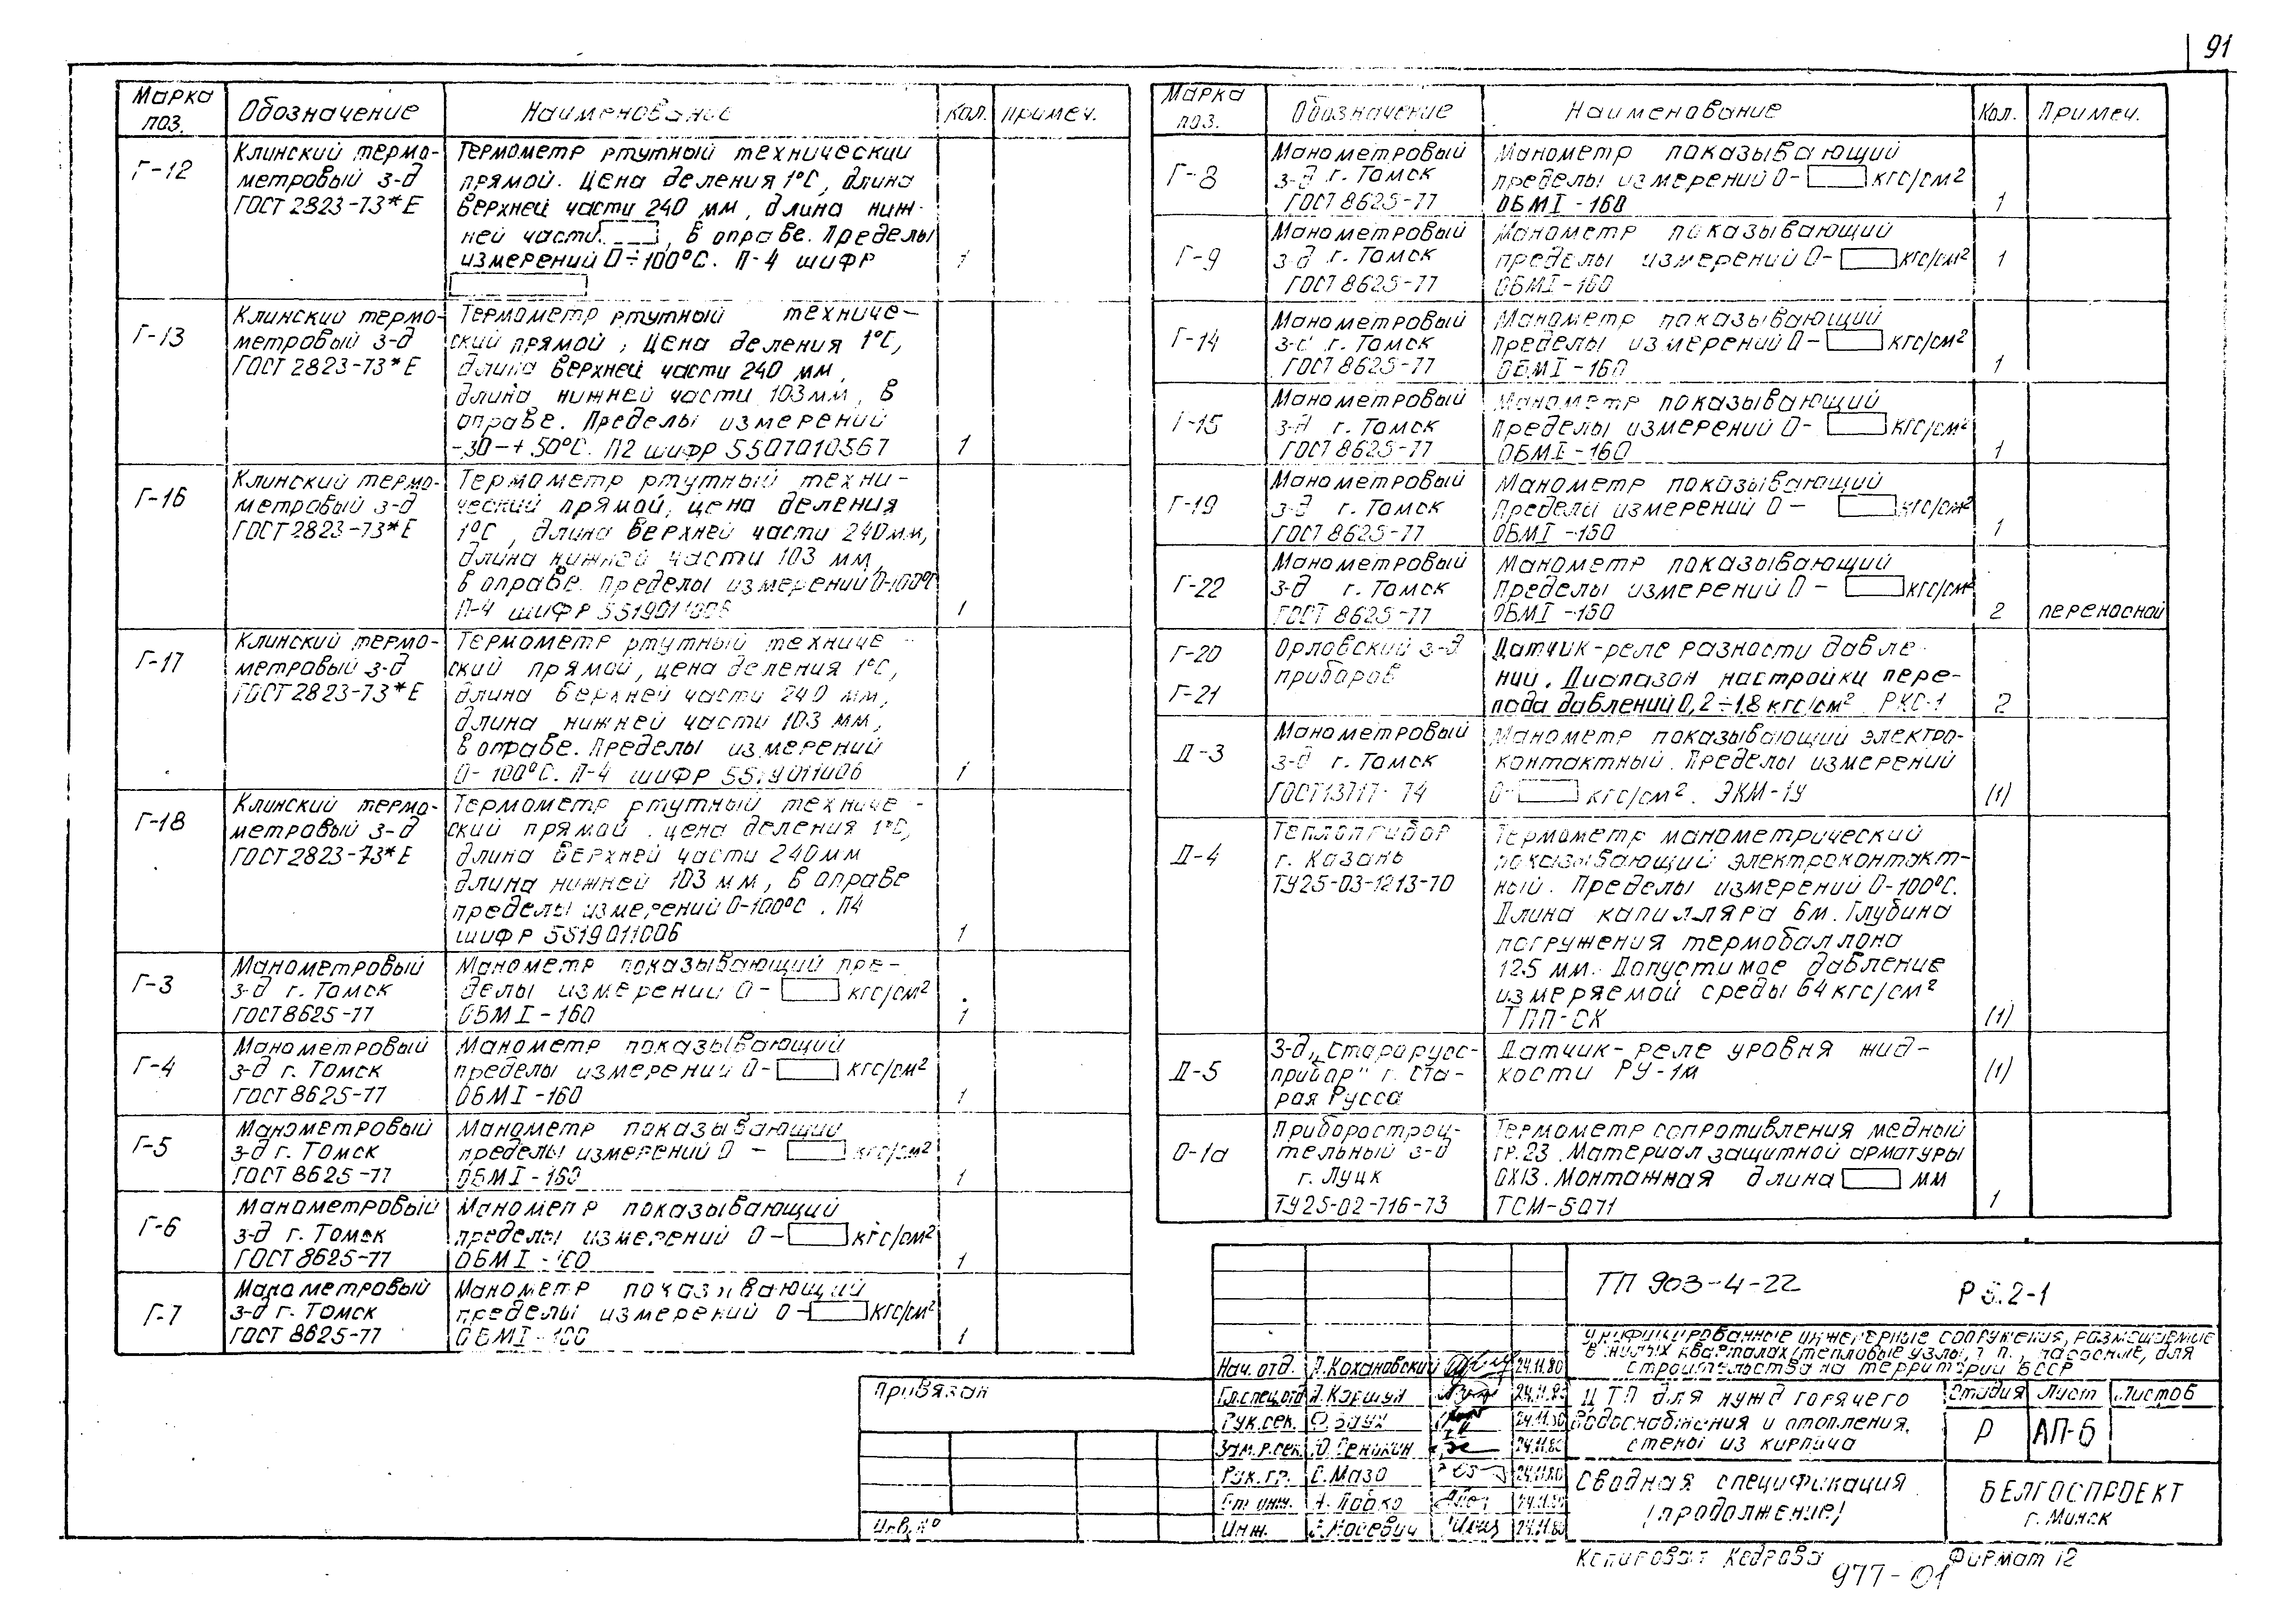 91
Марка поз.
Обозначение
Наименование
Кол.
Примеч.
Г-12
Клинский термо-
метровый з-д
ГОСТ 2823-73*Е
Термометр ртутный технический
прямой. Цена деления 1°С, длина
верхней части 240 мм, длина ниж-
ней части      , в оправе. Пределы
измерений 0÷100°С. П-4 шифр
1
Г-13
Клинский термо-
метровый з-д
ГОСТ 2823-73*Е
Термометр ртутный техниче-
ский прямой, Цена деления 1°С,
длина верхней части 240 мм,
длина нижней части 103мм, в
оправе. Пределы измерений
-30-+50°С. П2 шифр 5507010567
1
Г-16
Клинский термо-
метровый з-д
ГОСТ 2823-73*Е
Термометр ртутный техни-
ческий прямой, цена деления
1°С, длина верхней части 240мм,
длина нижней части 103 мм,
в оправе. Пределы измерений 0-100°С
П-4 шифр 5519011006
1
Г-17
Клинский термо-
метровый з-д
ГОСТ 2823-73*Е
Термометр ртутный техниче-
ский прямой, цена деления 1°С,
длина верхней части 240 мм,
длина нижней части 103 мм,
в оправе. Пределы измерений
0-100°С. П-4 шифр 5519011006
1
Г-18
Клинский термо-
метровый з-д
ГОСТ 2823-73*Е
Термометр ртутный техниче-
ский прямой. цена деления 1°С,
длина верхней части 240мм
длина нижней 103 мм, в оправе
пределы измерений 0-100°С. П4
шифр 5519011006
1
Г-3
Манометровый
з-д г. Томск
ГОСТ 8625-77
Манометр показывающий пре-
делы измерений 0-      кгс/см²
ОБМ1-160
1
Г-4
Манометровый
з-д г. Томск
ГОСТ 8625-77
Манометр показывающий
пределы измерений 0-      кгс/см²
ОБМ1-160
1
Г-5
Манометровый
з-д г. Томск
ГОСТ 8625-77
Манометр показывающий
пределы измерений 0 -      кгс/см²
ОБМ1-160
1
Г-6
Манометровый
з-д г. Томск
ГОСТ 8625-77
Манометр показывающий
пределы измерений 0-      кгс/см²
ОБМ1-160
1
Г-7
Манометровый
з-д г. Томск
ГОСТ 8625-77
Манометр показывающий
пределы измерений 0-      кгс/см²
ОБМ1-100
1
Марка поз.
Обозначение
Наименование
Кол.
Примеч.
Г-8
Манометровый
з-д г. Томск
ГОСТ 8625-77
Манометр показывающий
пределы измерений 0-      кгс/см²
ОБМ1-160
1
Г-9
Манометровый
з-д г. Томск
ГОСТ 8625-77
Манометр показывающий
пределы измерений 0-      кгс/см²
ОБМ1-160
1
Г-14
Манометровый
з-д г. Томск
ГОСТ 8625-77
Манометр показывающий
Пределы измерений 0-      кгс/см²
ОБМ1-160
1
Г-15
Манометровый
з-д г. Томск
ГОСТ 8625-77
Манометр показывающий
Пределы измерений 0-      кгс/см²
ОБМ1-160
1
Г-19
Манометровый
з-д г. Томск
ГОСТ 8625-77
Манометр показывающий
Пределы измерений 0 -      кгс/см²
ОБМ1-150
1
Г-22
Манометровый
з-д г. Томск
ГОСТ 8625-77
Манометр показывающий
Пределы измерений 0 -      кгс/см²
ОБМ1-150
2
переносной
Г-20
Г-21
Орловский з-д
приборов
Датчик-реле разности давле-
ний. Диапазон настройки пере-
пада давлений 0,2÷1,8 кгс/см² РКС-1
2
Д-3
Манометровый
з-д г. Томск
ГОСТ 13717-74
Манометр показывающий электро-
контактный. Пределы измерений
0-      кгс/см². ЭКМ-1У
(1)
Д-4
Теплоприбор
г. Казань
ТУ25-03-1213-70
Термометр манометрический
показывающий электроконтакт-
ный. Пределы измерений 0-100°С.
Длина капилляра 6м. Глубина
погружения термобаллона
125 мм. Допустимое давление
измеряемой среды 64 кгс/см²
ТПП-СК
(1)
Д-5
З-д „Старорусс-
прибор" г. Ста-
рая Русса
Датчик-реле уровня жид-
кости РУ-1м
(1)
0-1а
Приборострои-
тельный з-д
г. Луцк
ТУ25-02-716-73
Термометр сопротивления медный
гр.23. Материал защитной арматуры
0Х13. Монтажная длина      мм
ТСМ-5071
1
ТП 903-4-22
Р 5.2-1
Унифицированные инженерные сооружения, размещаемые
в жилых кварталах (тепловые узлы, т.п., насосные, для
строительства на территории БССР
Нач. отд. Кохановский 24.11.80
Гл.спец.отд Коршун 24.11.80
Рук.сек. 24.11.80
Зам.р.сек. 24.11.80
Рук. гр. С. Мазо 24.11.80
Ст. инж. Лобко 24.11.80
Инж. 24.11.80
ЦТП для нужд горячего
водоснабжения и отопления,
стены из кирпича
Стадия Лист Листов
Р АП-6
Сводная спецификация
(продолжение)
БЕЛГОСПРОЕКТ
г. Минск
Привязан
Инв. №
Копировал Кедрова
Формат 12
977-01